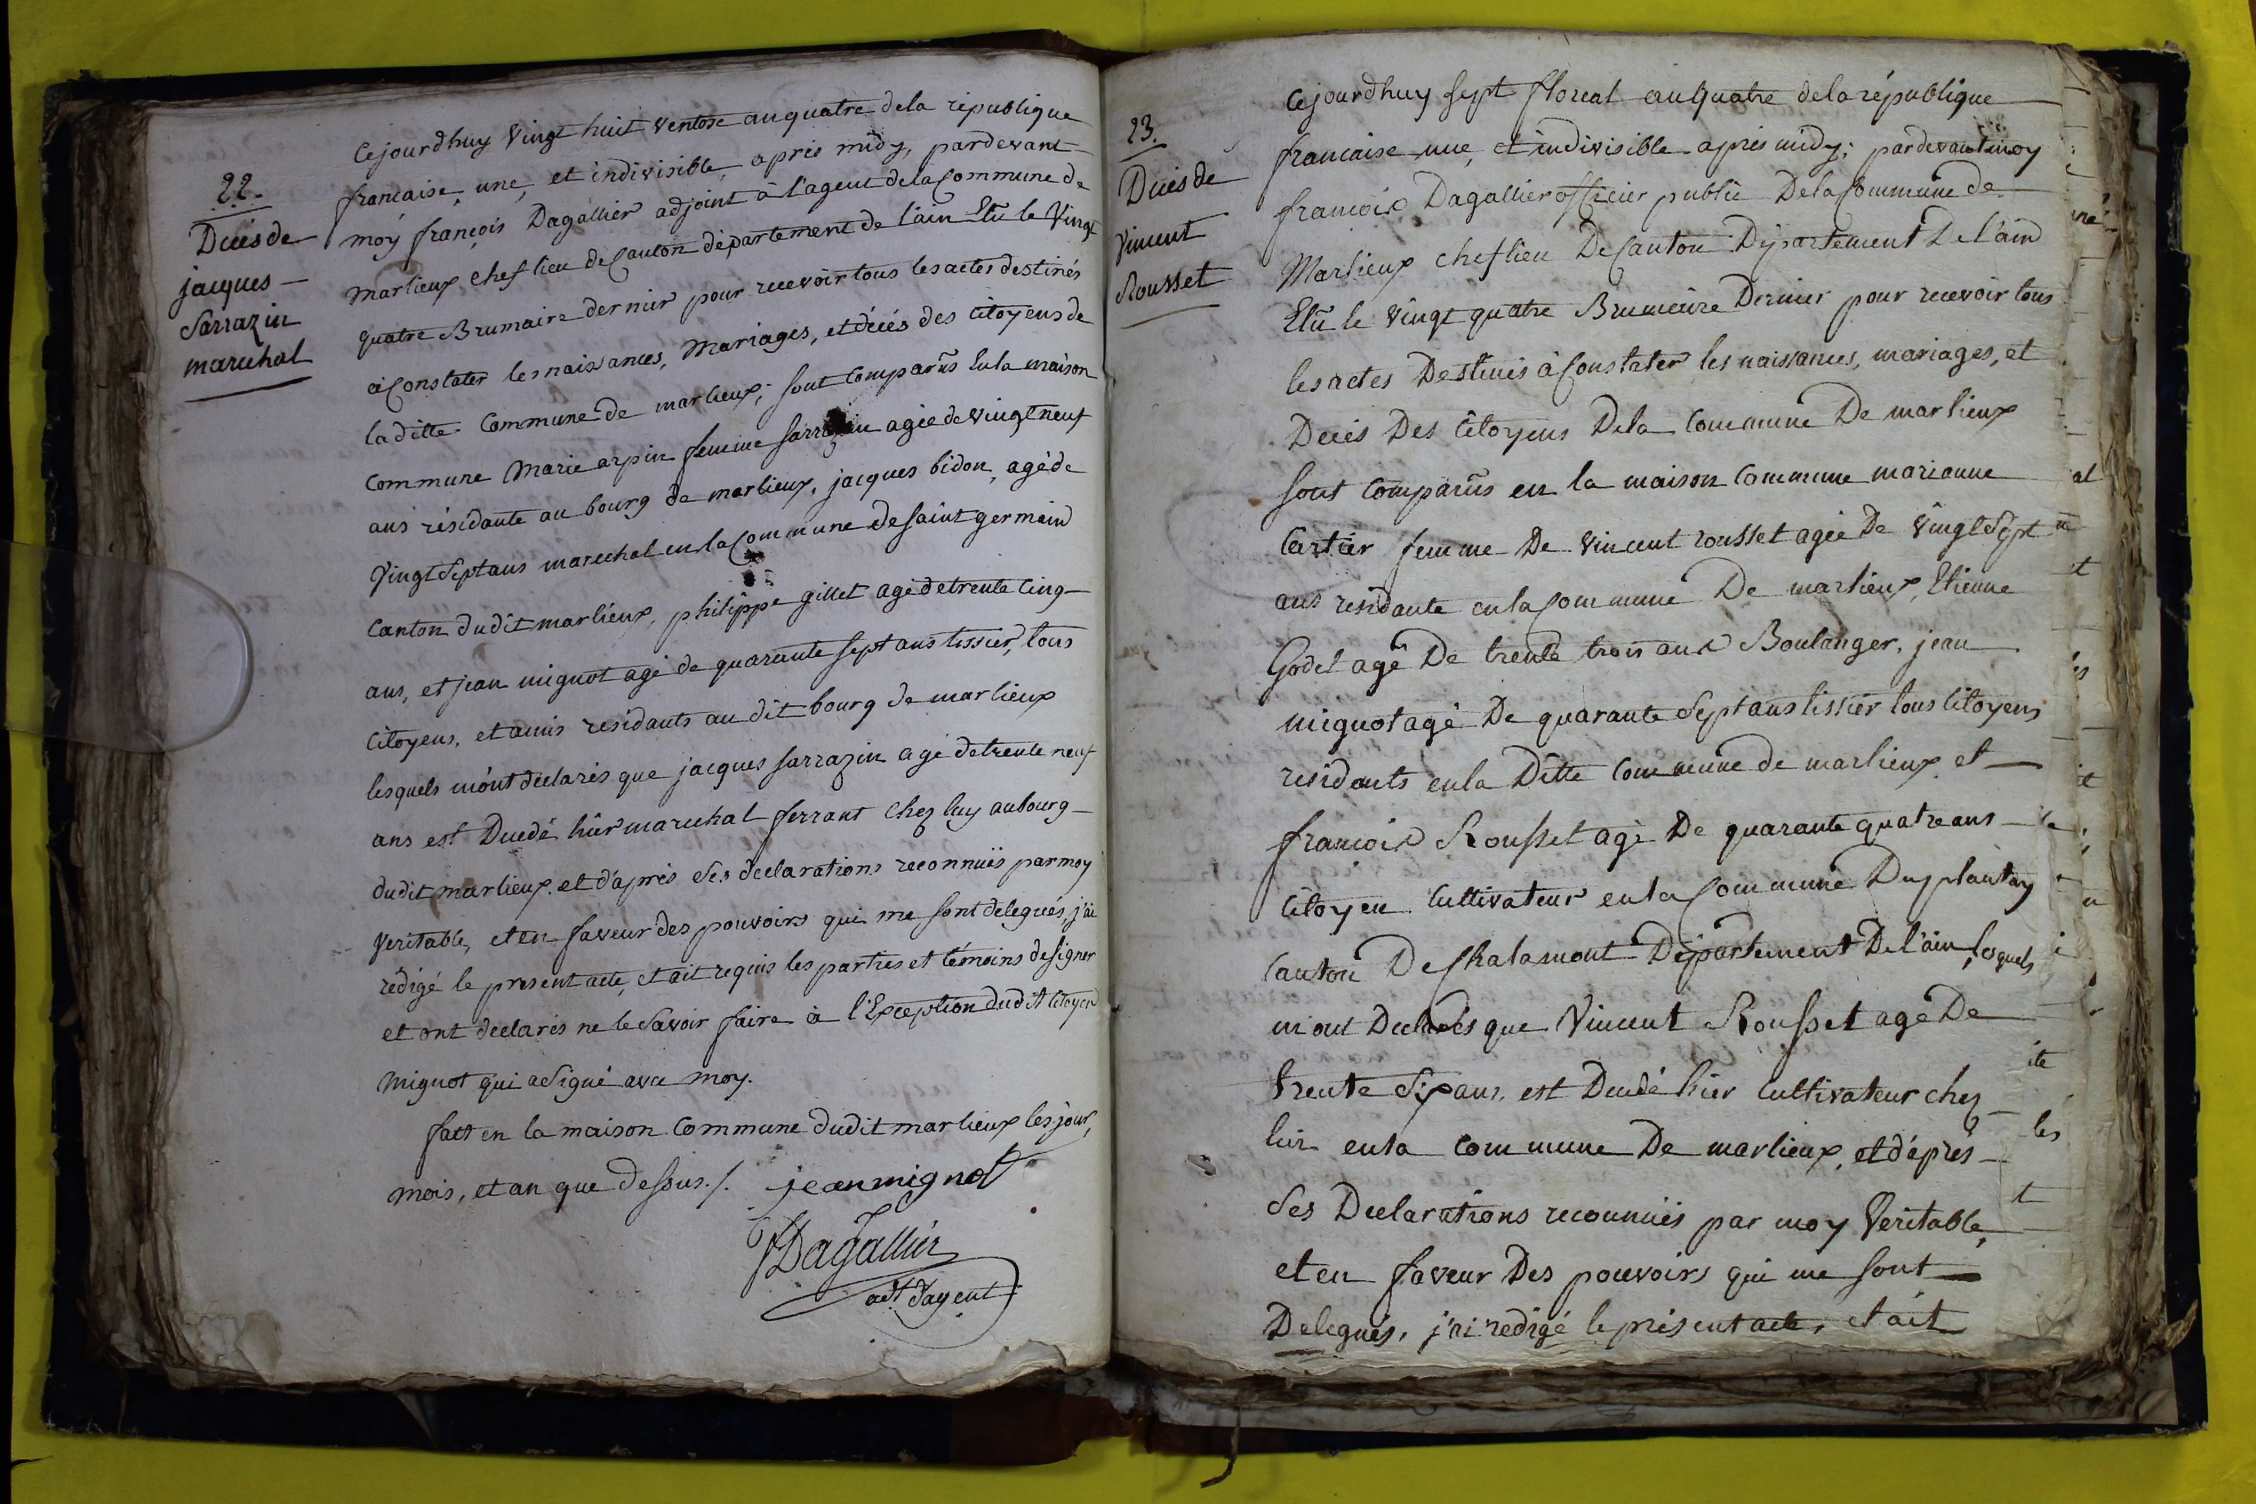 22.
Décés de
jacques
Sarrazin
marechal
Cejourdhuy Vingt huit ventose an quatre dela république
francaise, une, et indivisible, apris midy, pardevant
moy françois Dagallier adjoint à l'agent dela Commune de
marlieux chef lieu de Canton département de l'ain Elû le Vingt
quatre Brumaire dernier pour recevoir tous les actes destinés
à Constater les naissances, Mariages, et décés des Citoyens de
la ditte Commune de marlieux; sont Comparûs En la maison
Commune Marie arpin femme sarrazin agée de vingt neuf
ans résidante au bourg de marlieux, jacques bidon, agé de
Vingt Sept ans marechal en la Commune de saint germain
Canton dudit marlieux, philippe gillet agé de trente Cinq
ans, et jean mignot agé de quarante sept ans tissier, tous
Citoyens, et amis residants au dit bourg de marlieux
lesquels m'ont déclarés que jacques sarrazin agé de trente neuf
ans est Decedé hier marechal ferrant Chez luy au bourg
dudit marlieux, et d'apres Ses declarations reconnuës par moy
Veritable, et en faveur des pouvoirs qui me sont delegués, j'ai
rédigé le present acte, et ait requis les parties et témoins de signer
et ont declarés ne le Savoir faire à l'Exception dudit Citoyen
Mignot qui a Signé avec moy.
fait en la maison Commune dudit marlieux les jour,
mois, et an que dessus./. jean mignot
FDagallier
adt d'agent
23.
Décés de
Vincent
Rousset
Cejourdhuy Sept floreal an Quatre dela république
francaise une, et indivisible apris midy; pardevant moy
francois Dagallier officier public De la Commune de
Marlieux chef lieu De Canton Département De l'ain
Elû le vingt quatre Brumaire Dernier pour recevoir tous
les actes Destinés à Constater les naissances, mariages, et
Décés Des Citoyens Dela Commune De marlieux
sont Comparûs en la maison Commune marianne
Cartier femme De vincent rousset agée De vingt Sept
ans residante en la Commune De marlieux, Etienne
Godet agé De trente trois ans Boulanger, jean
mignot agé De quarante Sept ans tissier tous Citoyens
residants en la Ditte Commune de marlieux et
francois Rousset agé De quarante quatre ans
Citoyen Cultivateur en la Commune Du plantay
Canton De Chalamont Département De l'ain, lesquels
m'ont Declarés que Vincent Rousset agé De
trente Six ans est Decedé hier Cultivateur chez
lui en la Commune De marlieux, et d'aprés
Ses Declarations reconnuës par moy Veritable,
et en faveur Des pouvoirs qui me sont
Delegués, j'ai redigé le présent acte, et ait